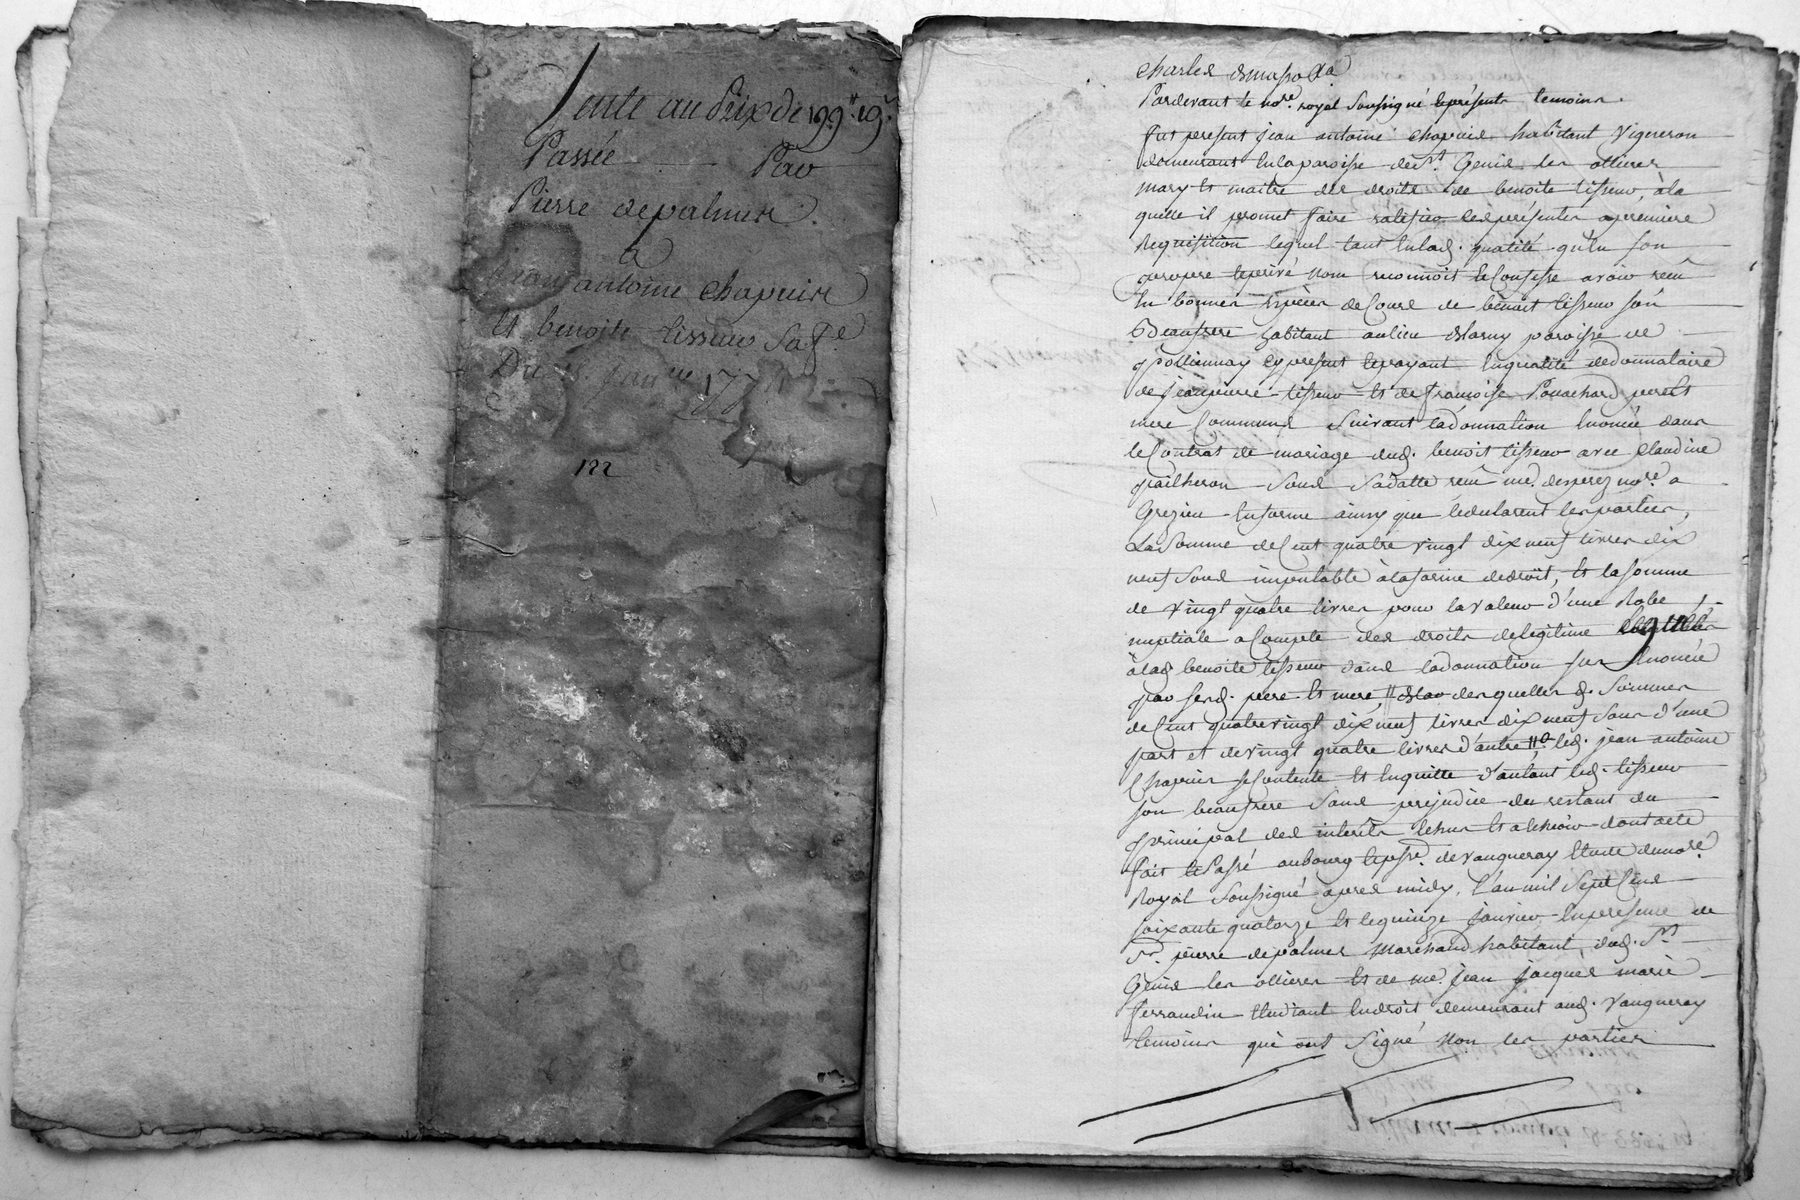 Vente au Prix de 199# 19s
Passée Par
Pierre depalmes
a
Jean antoine Chapuis
Et benoite tisseur Sa fe
Du 15 janvier 177
122
Charles
Pardevant le nore. royal Soussigné et présents temoins.
fut present jean antoine chapuis habitant Vigneron
demeurant En la paroisse de St. Genis les ollieres
mary Et maitre des droits de benoite tisseur, à la
quelle il promet faire ratifier les présentes a premiere
Requisition lequel tant En lad. qualité qu'En son
propre et privé Nom reconnoit et Confesse avoir reçû
En bonnes Espèces de Cours de benoit tisseur son
Beaufrere habitant au lieu paroisse de
Pollionnay cy present et payant En qualité de donnataire
de jean pierre tisseur Et de francoise Ponachard pere Et
mere Communs Suivant la donnation Enoncée dans
le Contrat de mariage dud. benoit tisseur avec Claudine
pailheron Sous Sa datte reçû me. desperez nore. a
Grezieu En forme ainsy que le declarent les parties,
La Somme de Cent quatre vingt dix neuf livres dix
neuf Sous imputable à la forme de droit, Et la somme
de vingt quatre livres pour la valeur d'une Robe
nuptiale a Compte des droits de legitime
à lad benoite tisseur dans la donnation sus Enoncée
par sesd. pere Et mere // des quelles d. Sommes
de Cent quatre vingt dix neuf livres dix neuf Sous d'une
part et de vingt quatre livres d'autre led. jean antoine
Chapuis se Contente Et En quitte d'autant led. tisseur
son beaufrere Sans prejudice du restant du
principal des interets Echus Et a Echeoir dont acte
fait et Passé au bourg et psse. de vaugneray Etude du nore.
Royal Soussigné apres midy, l'an mil Sept Cens
soixante quatorze Et le quinze janvier En presence de
Sr. pierre depalmes Marchand habitant, dud. St.
Genis les ollieres Et de me. jean jacques marie
ferrandin Etudiant En droit demeurant aud. vaugneray
temoins qui ont Signé Non les parties